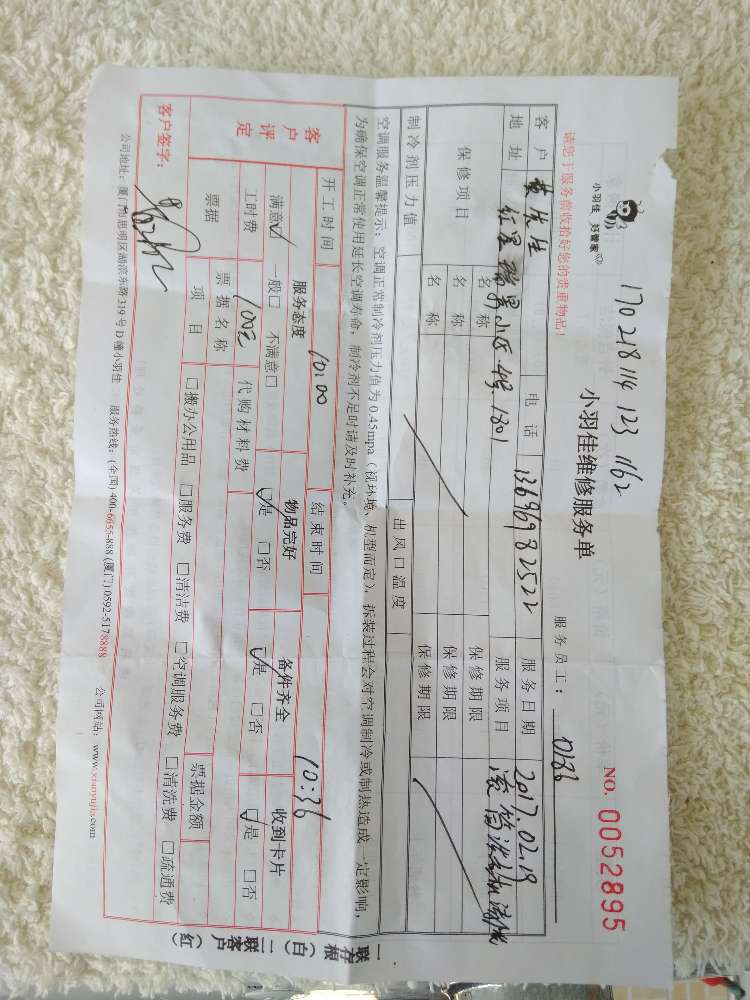 170218114 123 1162
小羽佳 好管家
小羽佳维修服务单
NO. 0052895
请您于服务前收拾好您的贵重物品！
服务员工：
客户 黄先生 电话 13696982522 服务日期 2017.02.19
地址 小区 4号 1801 服务项目 滚筒洗衣机清洗
保修项目 名称 保修期限
名称 保修期限
名称 保修期限
制冷剂压力值 出风口温度
空调服务温馨提示：空调正常制冷剂压力值为0.45mpa（视环境、机型而定），拆装过程会对空调制冷或制热造成一定影响，
为确保空调正常使用延长空调寿命，制冷剂不足时请及时补充。
开工时间 10:00 结束时间 10:36
客户评定 服务态度 物品完好 备件齐全 收到卡片
满意☑ 一般□ 不满意□ ☑是 □否 ☑是 □否 ☑是 □否
工时费 100元 代购材料费
票据 票据名称 票据金额
项目 □搬办公用品 □服务费 □清洁费 □空调服务费 □清洗费 □疏通费
客户签字：
公司地址：厦门市思明区湖滨东路319号D幢小羽佳 服务热线：(全国)400-6655-888 (厦门)0592-5178888 公司网站：www.xiaoyujia.com
一联存根（白）二联客户（红）